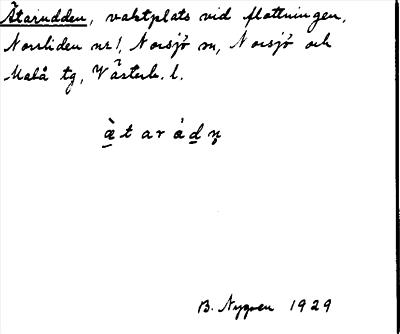 Ätarudden, vaktplats vid flottningen,
Norrliden nr 1, Norsjö sn, Norsjö och
Malå tg, Västerb. l.
B. Nygren 1929